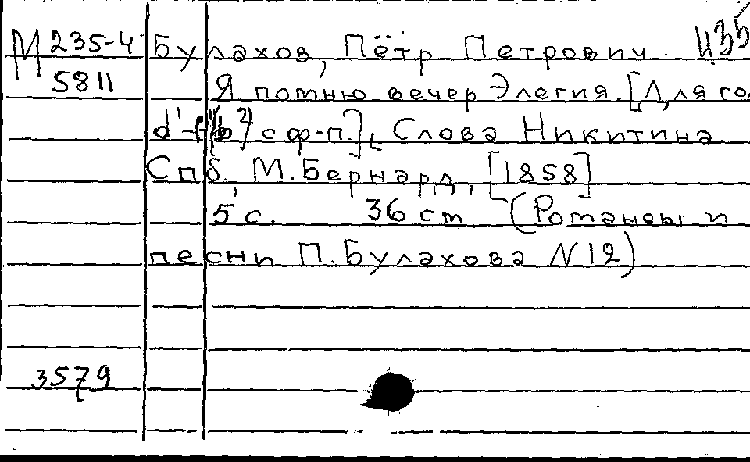 М 235-4 Булахов, Пётр Петрович 435
5811 Я помню вечер Элегия. [Для го
d'- 2) с ф-п.], Слова Никитина
Спб, М. Бернард, [1858]
5 с. 36 cm (Романсы и
песни П. Булахова N 12)
3579